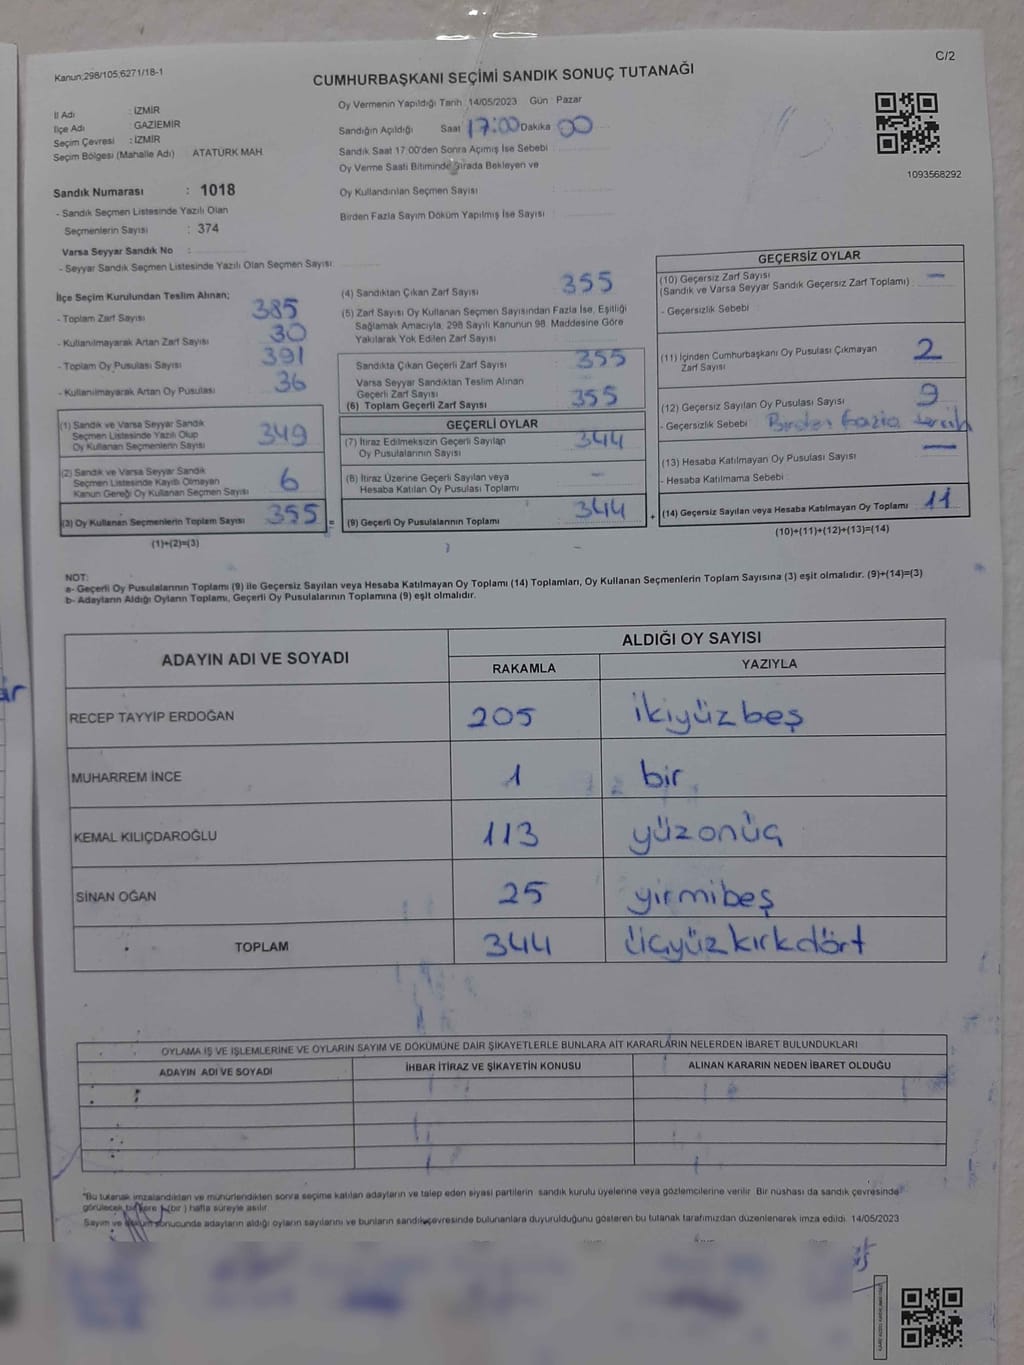 C/2
Kanun;298/105,6271/18-1
CUMHURBAŞKANI SEÇİMİ SANDIK SONUÇ TUTANAĞI
İl Adı : İZMİR
İlçe Adı : GAZİEMİR
Seçim Çevresi : İZMİR
Seçim Bölgesi (Mahalle Adı) ATATÜRK MAH
Sandık Numarası : 1018
- Sandık Seçmen Listesinde Yazılı Olan
Seçmenlerin Sayısı : 374
Varsa Seyyar Sandık No :
- Seyyar Sandık Seçmen Listesinde Yazılı Olan Seçmen Sayısı:
Oy Vermenin Yapıldığı Tarih : 14/05/2023 Gün : Pazar
Sandığın Açıldığı Saat 17:00 Dakika 00
Sandık Saat 17:00'den Sonra Açımış İse Sebebi
Oy Verme Saati Bitiminde Sırada Bekleyen ve
Oy Kullandırılan Seçmen Sayısı
Birden Fazla Sayım Döküm Yapılmış İse Sayısı :
1093568292
İlçe Seçim Kurulundan Teslim Alınan;
- Toplam Zarf Sayısı 385
- Kullanılmayarak Artan Zarf Sayısı 30
- Toplam Oy Pusulası Sayısı 391
- Kullanılmayarak Artan Oy Pusulası 36
(1) Sandık ve Varsa Seyyar Sandık
Seçmen Listesinde Yazılı Olup
Oy Kullanan Seçmenlerin Sayısı 349
(2) Sandık ve Varsa Seyyar Sandık
Seçmen Listesinde Kayıtlı Olmayan
Kanun Gereği Oy Kullanan Seçmen Sayısı 6
(3) Oy Kullanan Seçmenlerin Toplam Sayısı 355
(1)+(2)=(3)
(4) Sandıktan Çıkan Zarf Sayısı 355
(5) Zarf Sayısı Oy Kullanan Seçmen Sayısından Fazla İse, Eşitliği
Sağlamak Amacıyla, 298 Sayılı Kanunun 98. Maddesine Göre
Yakılarak Yok Edilen Zarf Sayısı
Sandıkta Çıkan Geçerli Zarf Sayısı 355
Varsa Seyyar Sandıktan Teslim Alınan
Geçerli Zarf Sayısı
(6) Toplam Geçerli Zarf Sayısı 355
GEÇERLİ OYLAR
(7) İtiraz Edilmeksizin Geçerli Sayılan
Oy Pusulalarının Sayısı 344
(8) İtiraz Üzerine Geçerli Sayılan veya
Hesaba Katılan Oy Pusulası Toplamı -
= (9) Geçerli Oy Pusulalarının Toplamı 344
GEÇERSİZ OYLAR
(10) Geçersiz Zarf Sayısı
(Sandık ve Varsa Seyyar Sandık Geçersiz Zarf Toplamı) : -
- Geçersizlik Sebebi
(11) İçinden Cumhurbaşkanı Oy Pusulası Çıkmayan
Zarf Sayısı 2
(12) Geçersiz Sayılan Oy Pusulası Sayısı 9
- Geçersizlik Sebebi Birden fazla tercih
(13) Hesaba Katılmayan Oy Pusulası Sayısı -
- Hesaba Katılmama Sebebi
+ (14) Geçersiz Sayılan veya Hesaba Katılmayan Oy Toplamı 11
(10)+(11)+(12)+(13)=(14)
NOT:
a- Geçerli Oy Pusulalarının Toplamı (9) ile Geçersiz Sayılan veya Hesaba Katılmayan Oy Toplamı (14) Toplamları, Oy Kullanan Seçmenlerin Toplam Sayısına (3) eşit olmalıdır. (9)+(14)=(3)
b- Adayların Aldığı Oyların Toplamı, Geçerli Oy Pusulalarının Toplamına (9) eşit olmalıdır.
ADAYIN ADI VE SOYADI ALDIĞI OY SAYISI
RAKAMLA YAZIYLA
RECEP TAYYİP ERDOĞAN 205 ikiyüzbeş
MUHARREM İNCE 1 bir
KEMAL KILIÇDAROĞLU 113 yüzonüç
SİNAN OĞAN 25 yirmibeş
TOPLAM 344 üçyüzkırkdört
OYLAMA İŞ VE İŞLEMLERİNE VE OYLARIN SAYIM VE DÖKÜMÜNE DAİR ŞİKAYETLERLE BUNLARA AİT KARARLARIN NELERDEN İBARET BULUNDUKLARI
ADAYIN ADI VE SOYADI İHBAR İTİRAZ VE ŞİKAYETİN KONUSU ALINAN KARARIN NEDEN İBARET OLDUĞU
"Bu tutanak imzalandıktan ve mühürlendikten sonra seçime katılan adayların ve talep eden siyasi partilerin sandık kurulu üyelerine veya gözlemcilerine verilir. Bir nushası da sandık çevresinde
görülecek bir yere (bir) hafta süreyle asılır.
Sayım ve döküm sonucunda adayların aldığı oyların sayılarını ve bunların sandık çevresinde bulunanlara duyurulduğunu gösteren bu tutanak tarafımızdan düzenlenerek imza edildi. 14/05/2023